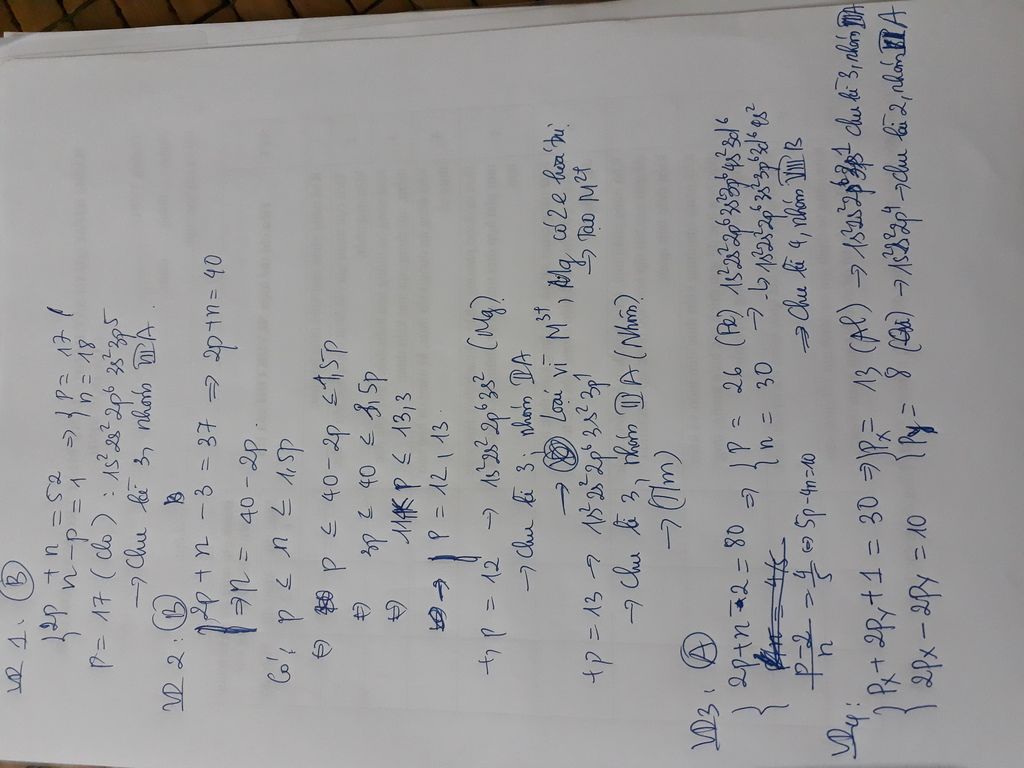 VD 1: (B)
{ 2p + n = 52
n - p = 1 ⇒ { p = 17
n = 18
p = 17 (clo) : 1s²2s²2p⁶3s²3p⁵
→ chu kì 3, nhóm VIIA.
VD 2: (B)
{ 2p + n - 3 = 37 ⇒ 2p + n = 40
⇒ n = 40 - 2p
Có: p ≤ n ≤ 1,5p
⇔ p ≤ 40 - 2p ≤ 1,5p
⇔ 3p ≤ 40 ≤ 3,5p
⇔ p ≤ 13,3
→ p = 12, 13
+, p = 12 → 1s²2s²2p⁶3s² (Mg)
→ chu kì 3, nhóm IIA
→ Loại vì M³⁺, Mg có 2e hoá trị.
→ Tạo M²⁺
+ p = 13 → 1s²2s²2p⁶3s²3p¹
→ chu kì 3, nhóm IIIA (Nhôm)
→ (Tm)
VD3: (A)
{ 2p + n - 2 = 80 ⇒ { p = 26 (Fe) 1s²2s²2p⁶3s²3p⁶4s²3d⁶
p - 2 / n = 4/5 ⇔ 5p - 4n = 10
n = 30 → 1s²2s²2p⁶3s²3p⁶3d⁶4s²
⇒ chu kì 4, nhóm VIIIB
VD4:
{ Px + 2Py + 1 = 30 ⇒ { Px = 13 (Al) → 1s²2s²2p⁶3s²3p¹ chu kì 3, nhóm IIIA
2Px - 2Py = 10 Py = 8 → 1s²2s²2p⁴ → chu kì 2, nhóm VIA